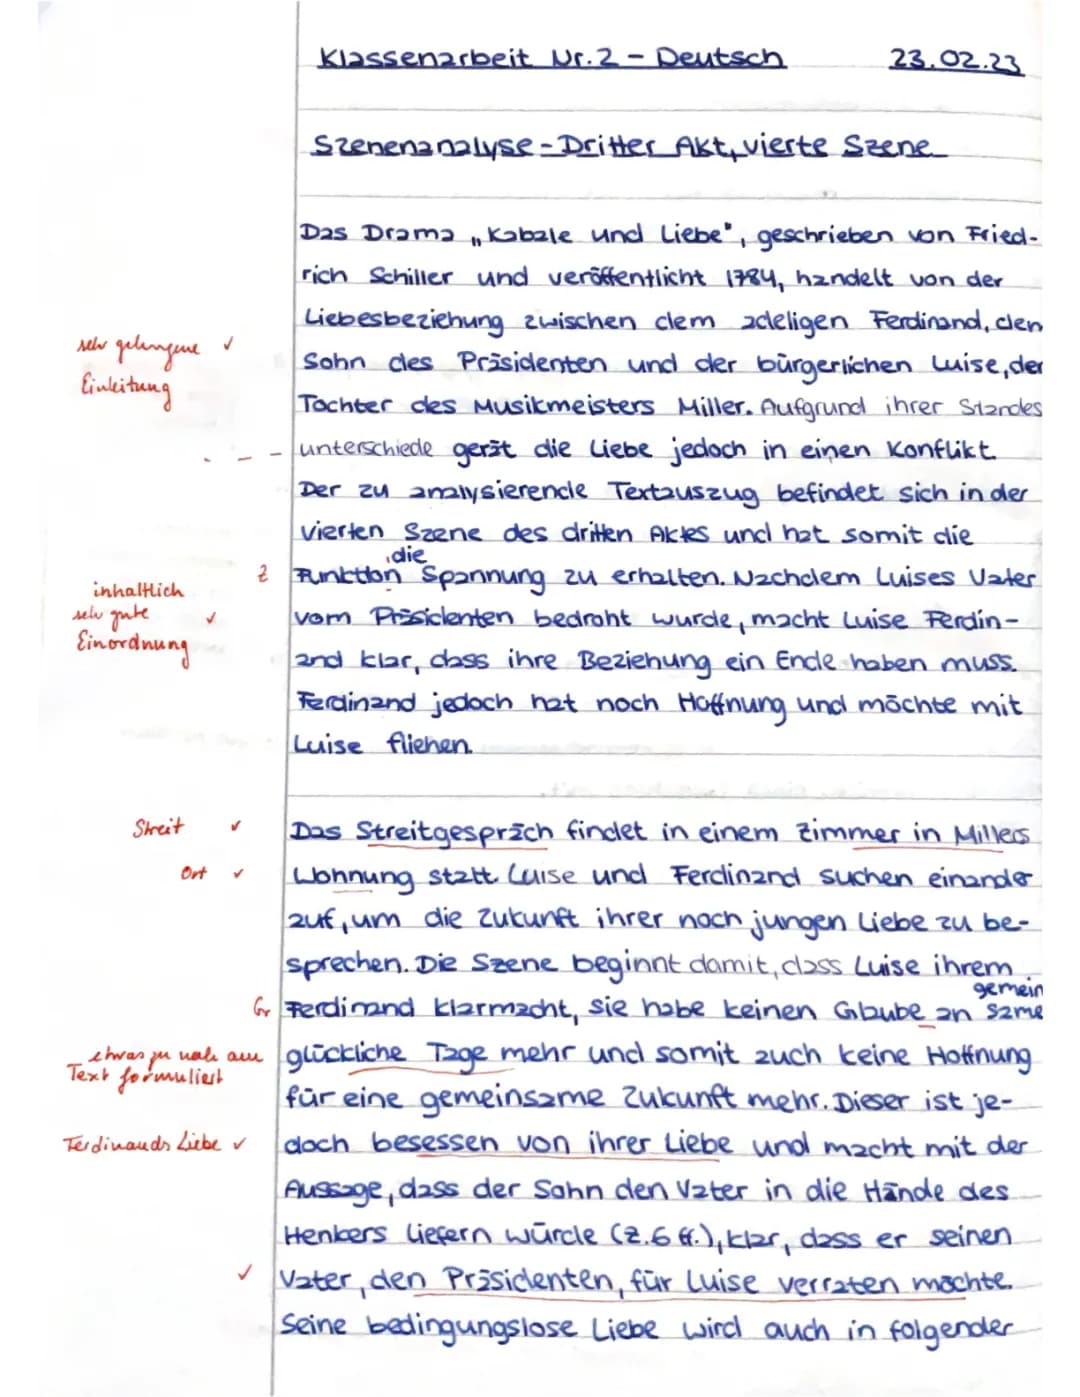 Klassenarbeit Nr. 2 – Deutsch 23.02.23
Szenenanalyse - Dritter Akt, vierte Szene
Das Drama „Kabale und Liebe", geschrieben von Fried-
rich Schiller und veröffentlicht 1784, handelt von der
Liebesbeziehung zwischen dem adeligen Ferdinand, den
sehr gelungene ✓ Sohn des Präsidenten und der bürgerlichen Luise, der
Einleitung
Tochter des Musikmeisters Miller. Aufgrund ihrer Standes
unterschiede gerät die Liebe jedoch in einen Konflikt.
Der zu analysierende Textauszug befindet sich in der
vierten Szene des dritten Aktes und hat somit die
, die
Z Funktion Spannung zu erhalten. Nachdem Luises Vater
inhaltlich
sehr gute ✓ vom Präsidenten bedroht wurde, macht Luise Ferdin-
Einordnung
and klar, dass ihre Beziehung ein Ende haben muss.
Ferdinand jedoch hat noch Hoffnung und möchte mit
Luise fliehen.
Streit ✓ Das Streitgespräch findet in einem Zimmer in Millers
Ort ✓ Wohnung statt. Luise und Ferdinand suchen einander
auf, um die Zukunft ihrer noch jungen Liebe zu be-
sprechen. Die Szene beginnt damit, dass Luise ihrem
gemein
Gr Ferdinand klarmacht, sie habe keinen Glaube an same
etwas zu nah am glückliche Tage mehr und somit auch keine Hoffnung
Text formuliert
für eine gemeinsame Zukunft mehr. Dieser ist je-
Ferdinands Liebe ✓ doch besessen von ihrer Liebe und macht mit der
Aussage, dass der Sohn den Vater in die Hände des
Henkers liefern würde (Z.6 ff.), klar, dass er seinen
✓ Vater, den Präsidenten, für Luise verraten möchte.
Seine bedingungslose Liebe wird auch in folgender